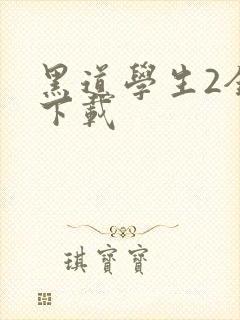 黑道學生2全
下載
琪寶寶